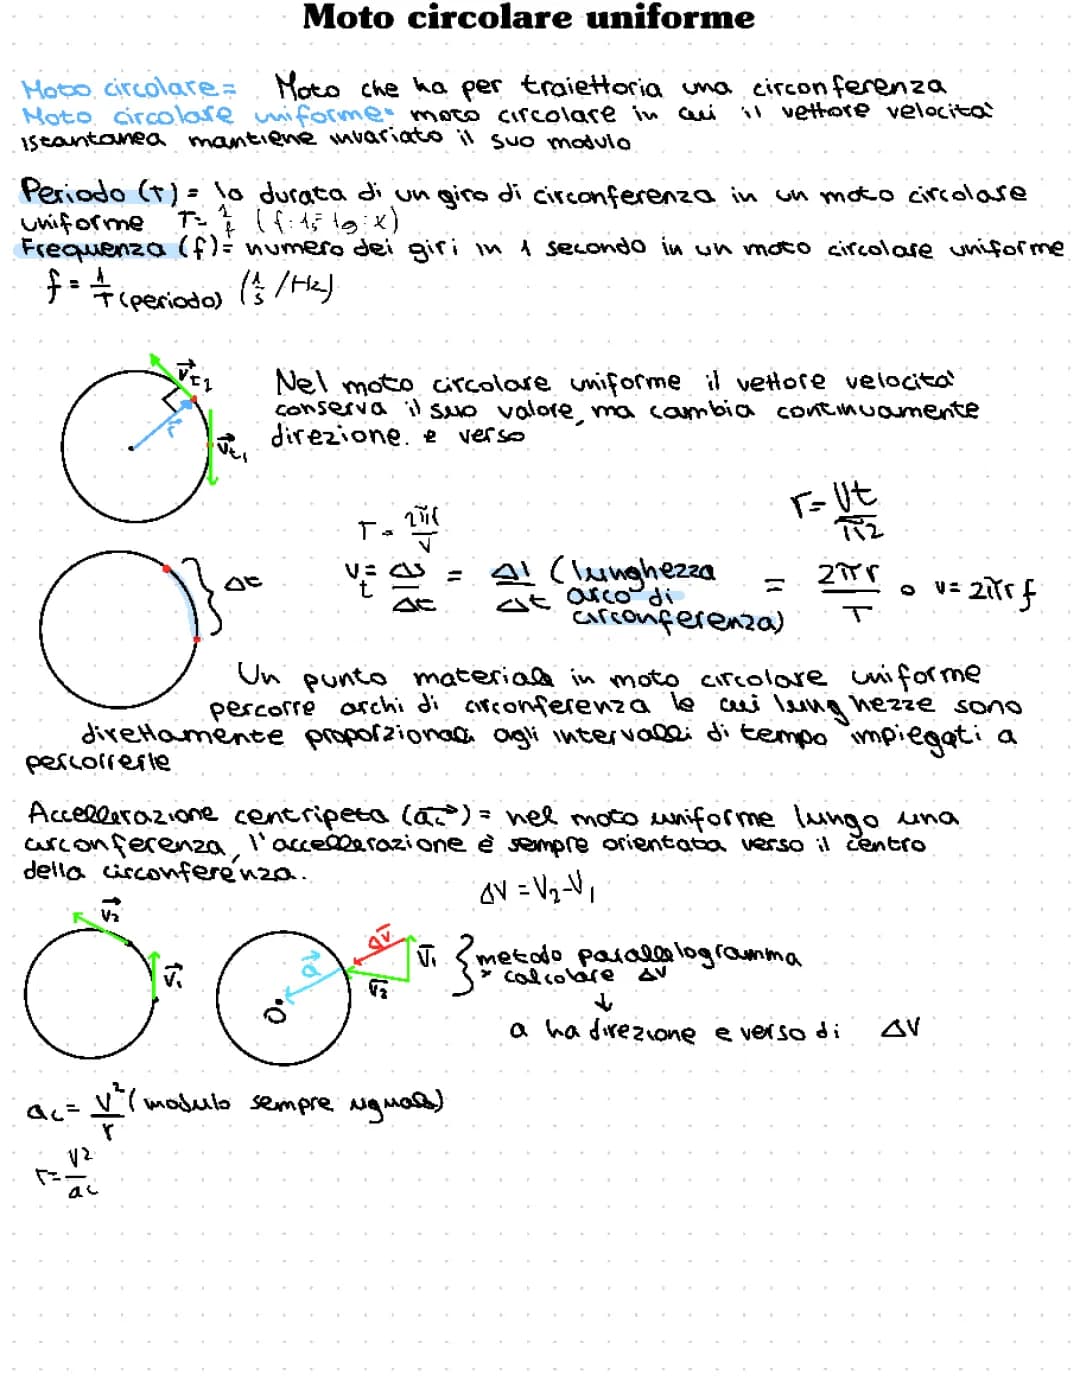 Moto circolare uniforme
Moto circolare = Moto che ha per traiettoria una circonferenza
Moto circolare uniforme= moto circolare in cui il vettore velocità
istantanea mantiene invariato il suo modulo
Periodo (T) = la durata di un giro di circonferenza in un moto circolare
uniforme T= 1/f
Frequenza (f)= numero dei giri in 1 secondo in un moto circolare uniforme
f = 1/T (periodo) (1/s /Hz)
v⃗t2
r⃗
v⃗t1
Nel moto circolare uniforme il vettore velocità
conserva il suo valore, ma cambia continuamente
direzione. e verso
T = 2πr/v
r= vt/π2
Δt
vt= Δs/Δt = Δl/Δt (lunghezza arco di circonferenza) = 2πr/T o v= 2πrf
Un punto materiale in moto circolare uniforme
percorre archi di circonferenza le cui lunghezze sono
direttamente proporzionali agli intervalli di tempo impiegati a
percorrerle
Accellerazione centripeta (a⃗c) = nel moto uniforme lungo una
circonferenza, l'accellerazione è sempre orientata verso il centro
della circonferenza.
ΔV = V2-V1
v⃗2
v⃗1
a⃗
O
Δv⃗
v⃗1
v⃗2
metodo parallelogramma
x calcolare ΔV
↓
a ha direzione e verso di ΔV
ac= v²/r (modulo sempre uguale)
r= v2/ac